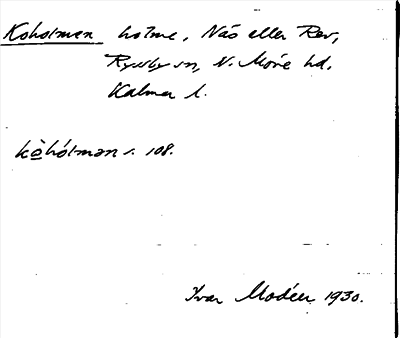 Koholmen holme, Näs eller Rev,
Ryssby sn, N. Möre hd.
Kalmar l.
kòhólman s. 108.
Ivar Modéer 1930.